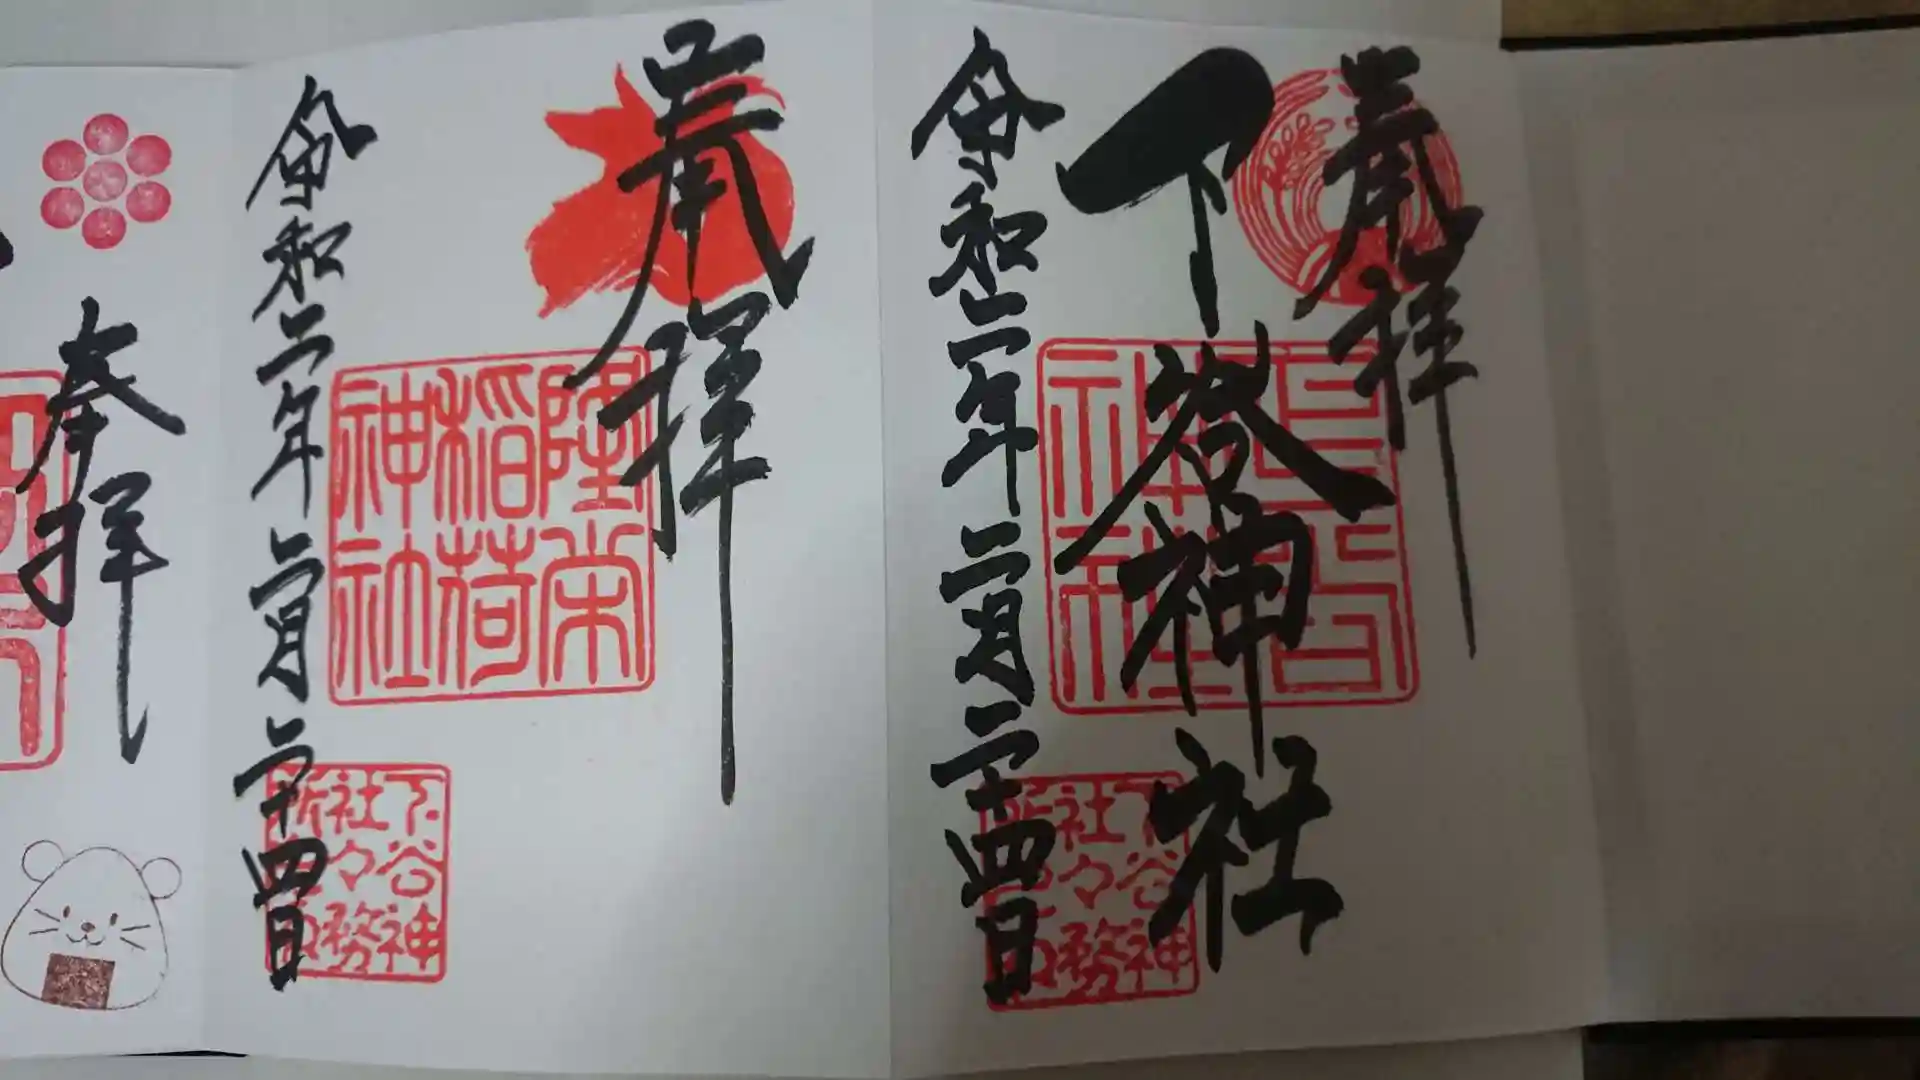 奉拝
下谷神社
令和二年二月二十四日
下谷神
社々務
奉拝
隆栄
稲荷
神社
令和二年二月二十四日
下谷神
社々務
奉拝